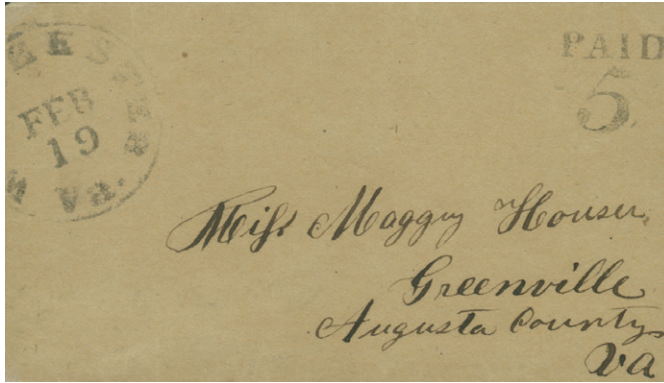 FEB
19
Va.
PAID
5
Miss Maggy Houser,
Greenville
Augusta County
Va